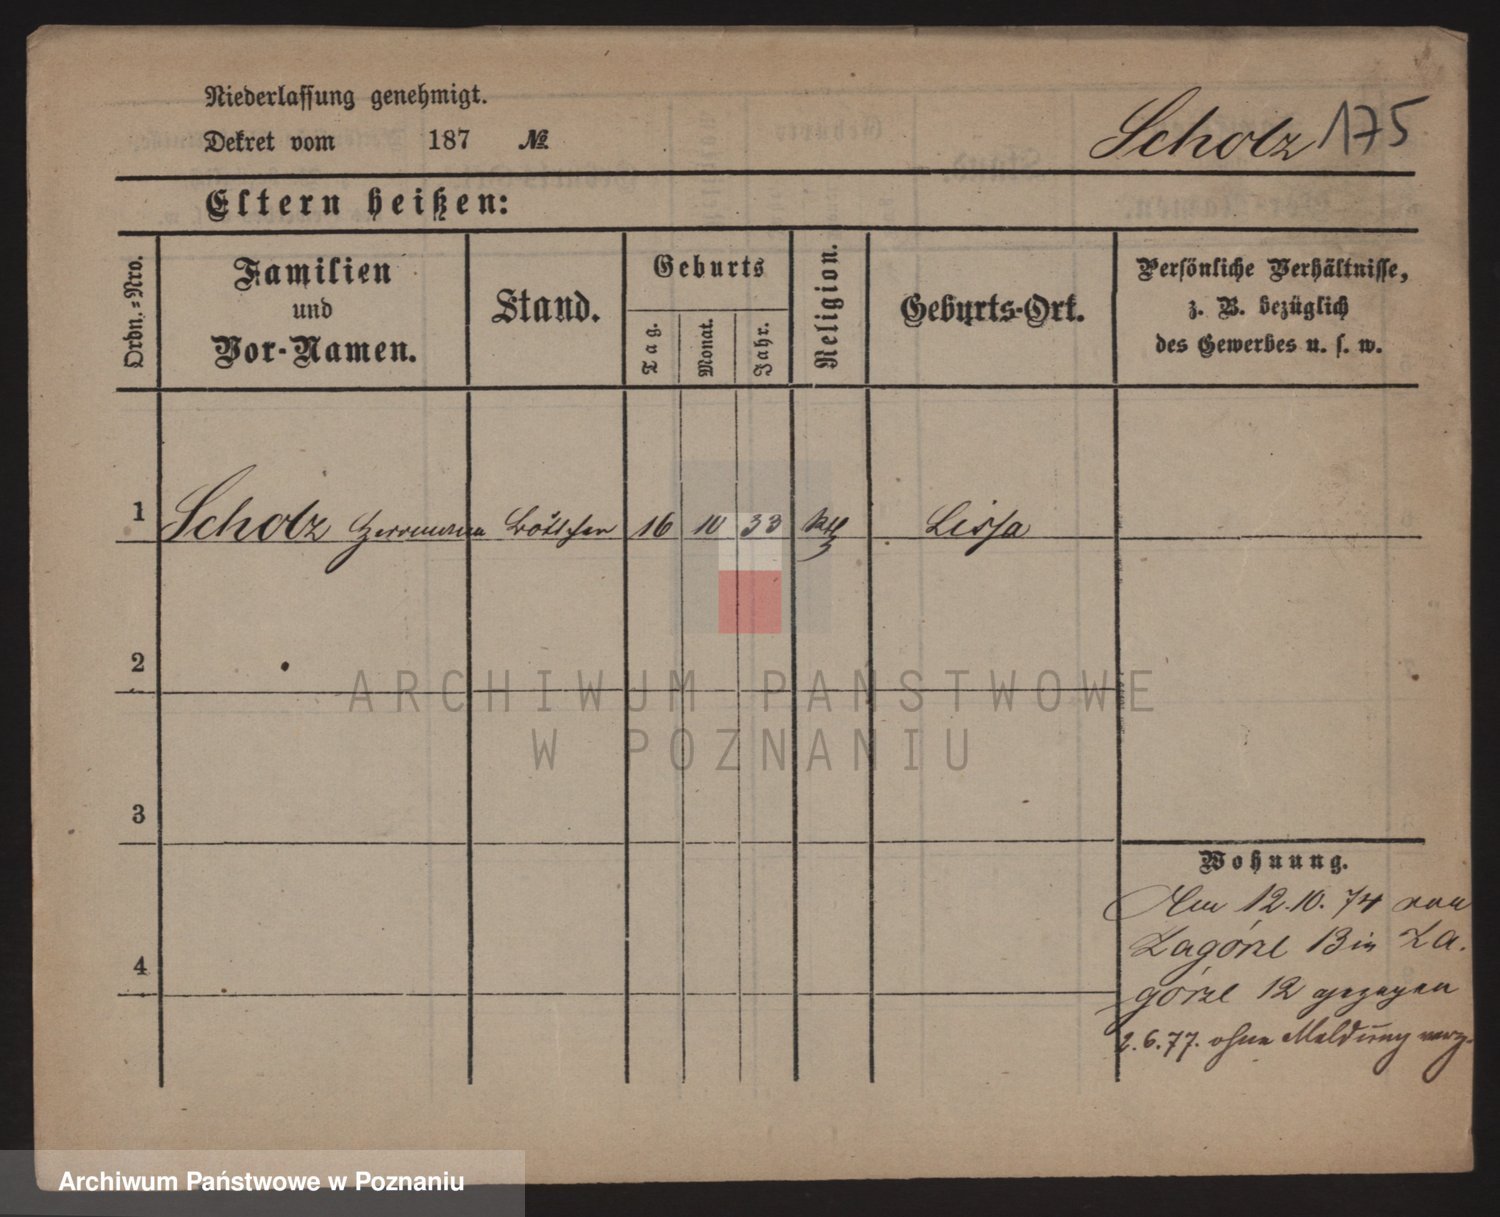 Niederlassung genehmigt.
Dekret vom 187 №
Scholz 175
Eltern heißen:
Ordn.-Nro.
Familien
und
Vor-Namen.
Stand.
Geburts
Tag.
Monat.
Jahr.
Religion.
Geburts-Ort.
Persönliche Verhältnisse,
z. B. bezüglich
des Gewerbes u. s. w.
1 Scholz Herrmann Böttcher 16 10 33 kth Lissa
2
3
4
Wohnung.
Am 12.10.74 von
Zagórze 13 in Za-
górze 12 gezogen
2.6.77. ohne Meldung verz.
ARCHIWUM PAŃSTWOWE
W POZNANIU
Archiwum Państwowe w Poznaniu